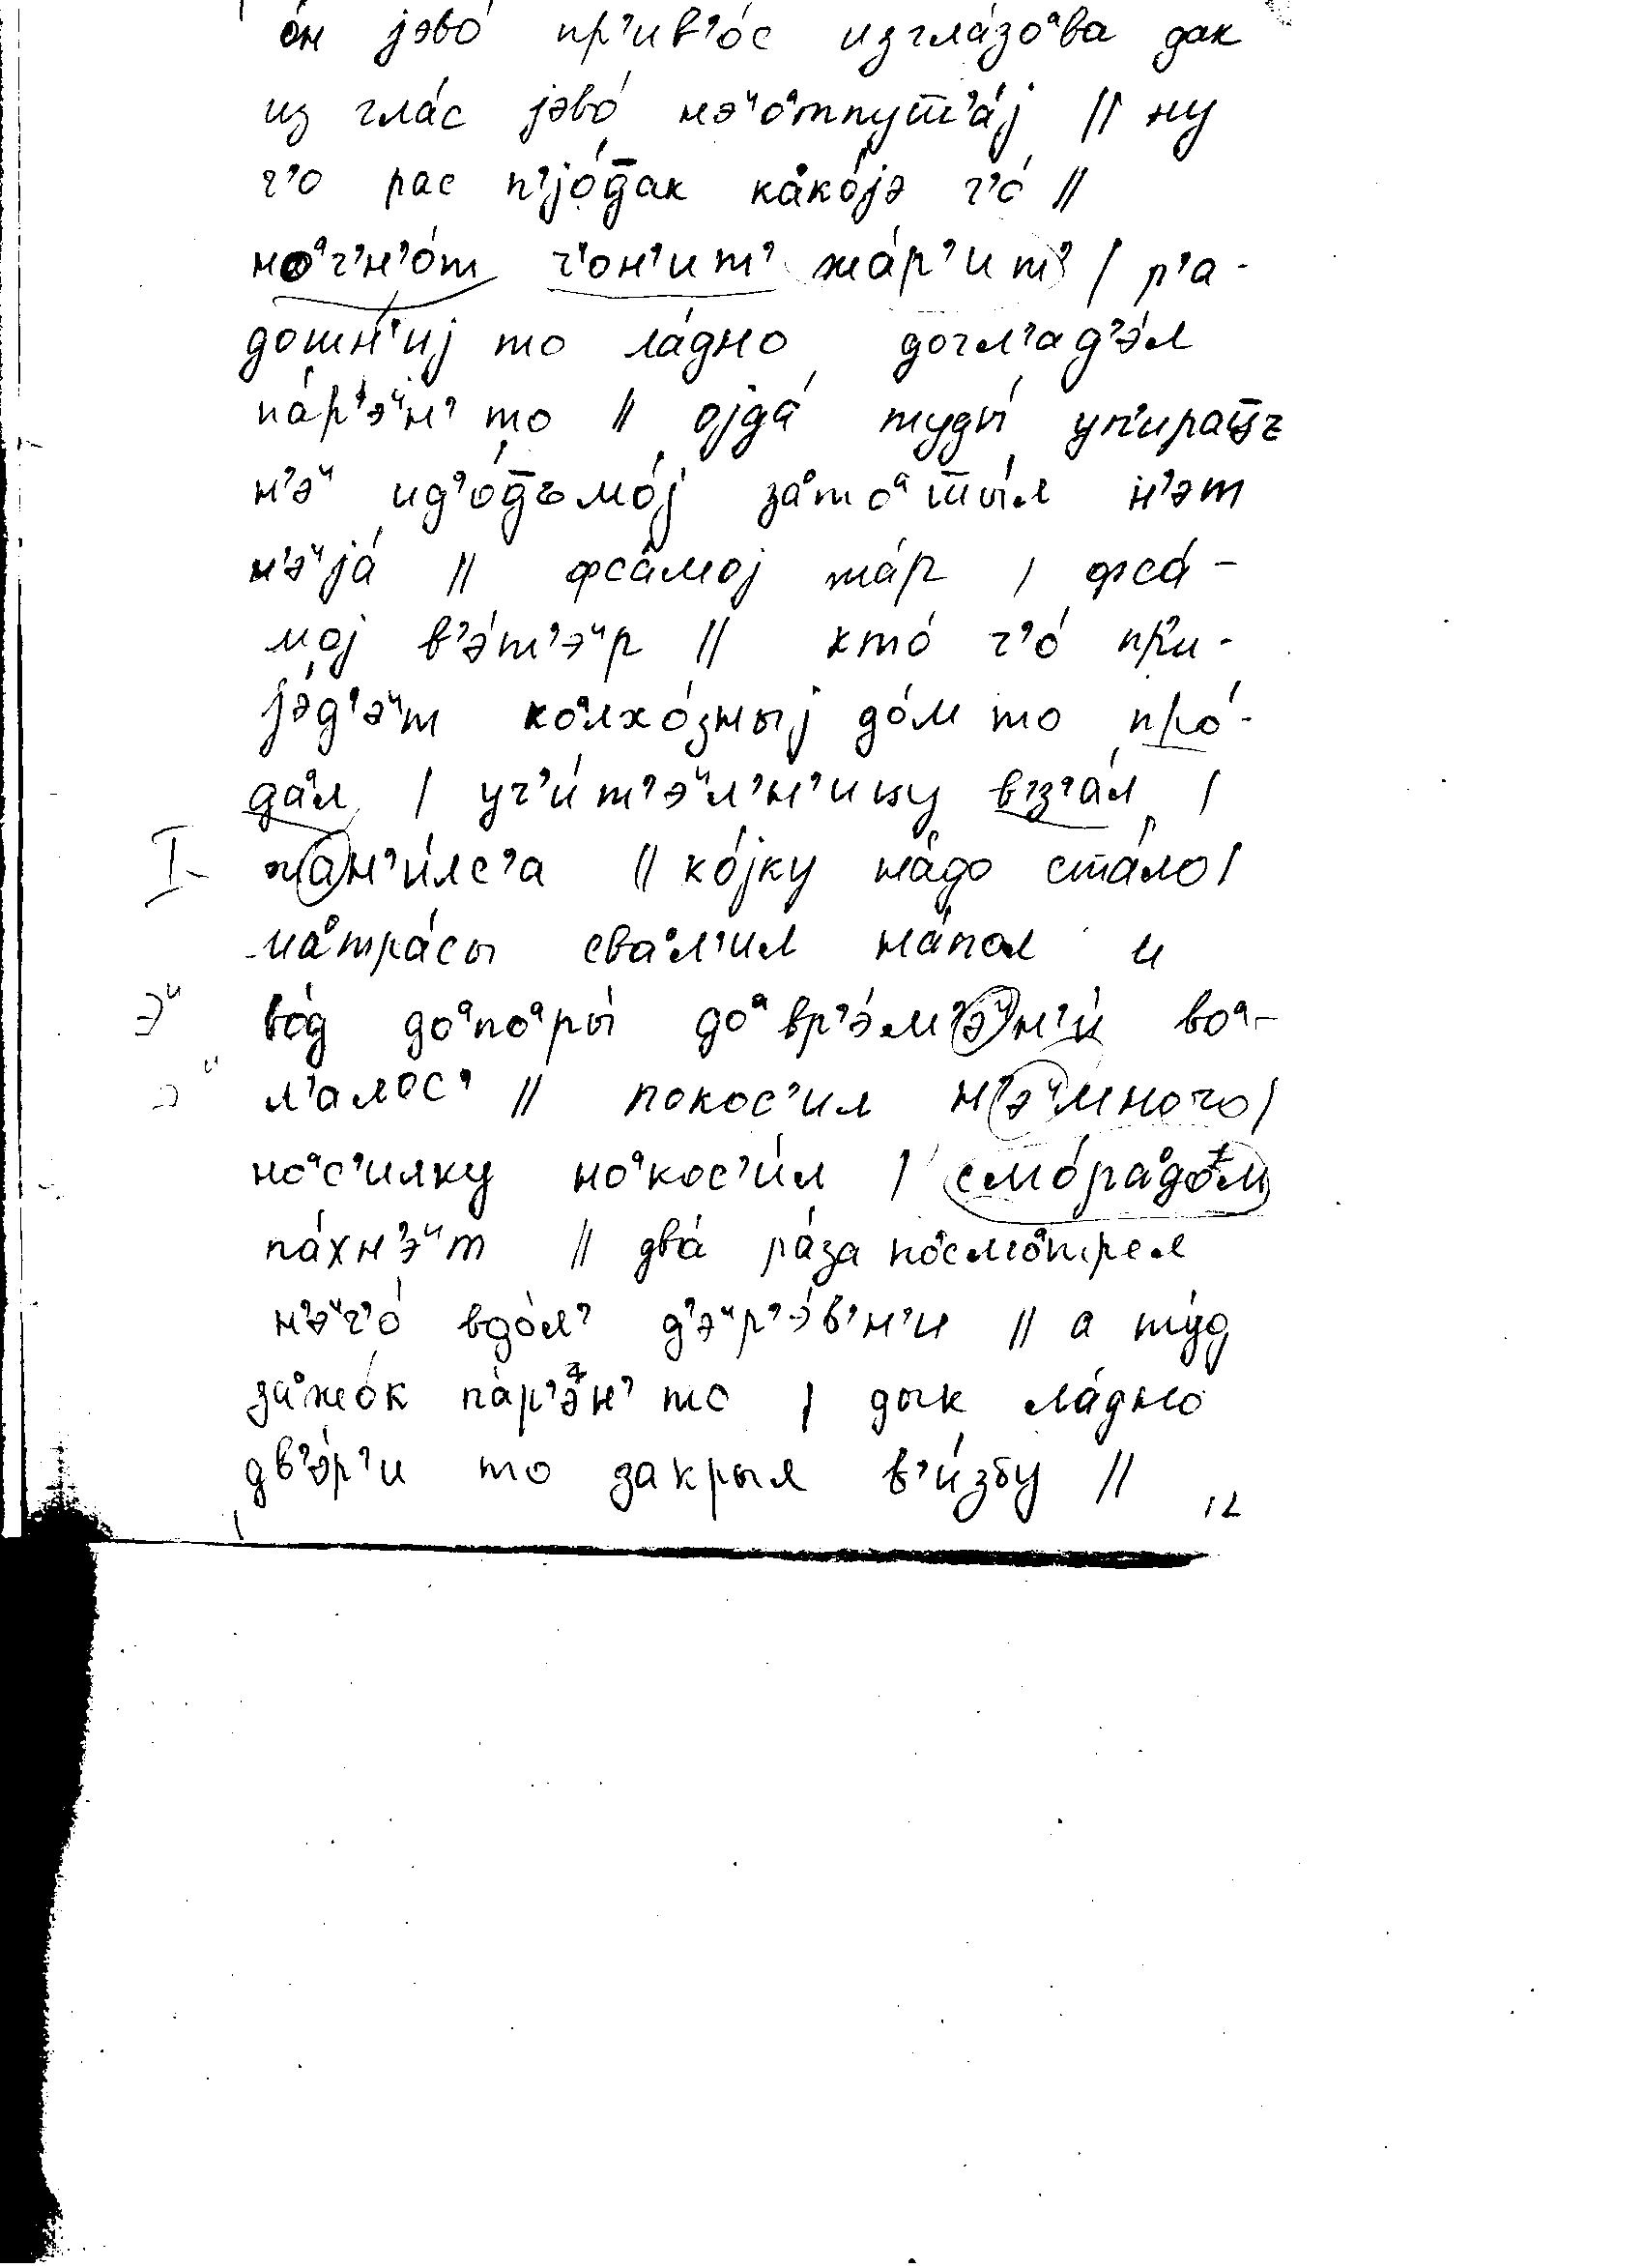 о́н јэво́ пр’ив’о́с изгла́зоᵃва дак
из гла́с јэво́ нэᶦоᵃтпут’а́ј // ну
ч’о рас п’јо́д̅ак каᵒко́јэ ч’о́ //
ноᵃч’н’о́т ч’он’ит’ жа́р’ит’ / р’а-
дошн’иј то ла́дно догл’ад’э́л
па́р’эᶦн’ то // ојда́ туды́ уп’ира́ц̅ъ
н’эᶦ ид’о́д̅ъмо́ј заᵒтоᵃпы́л н’эт
н’эᶦја́ // фса́мој жа́р / фса́-
мој в’э́т’эᶦр // кто́ ч’о́ при-
јэ́д’эᶦт коᵃлхо́зныј до́м то про́-
даᵒл / уч’и́т’эᶦл’н’ицу вз’а́л /
жан’и́лс’а // ко́јку на́до ста́ло /
маᵒтра́сы сваᵒл’ил на́пол и
Эᶦ во́д доᵃпоᵃры́ доᵃвр’э́м’эᶦн’и́ воᵃ-
эᶦ л’алос’ // покос’ил н’эᶦмного /
ноᵃс’илку ноᵃкос’и́л / смо́раᵒдом
па́хн’эᶦт // два́ ра́за поᵃсмоᵃтрел
н’эᶦч’о́ вдо́л’ д’эᶦр’э́в’н’и // а ту́д
заᵒжо́к па́р’эн’ то / дык ла́дно
дв’э́р’и то закрыл в’и́збу //
12